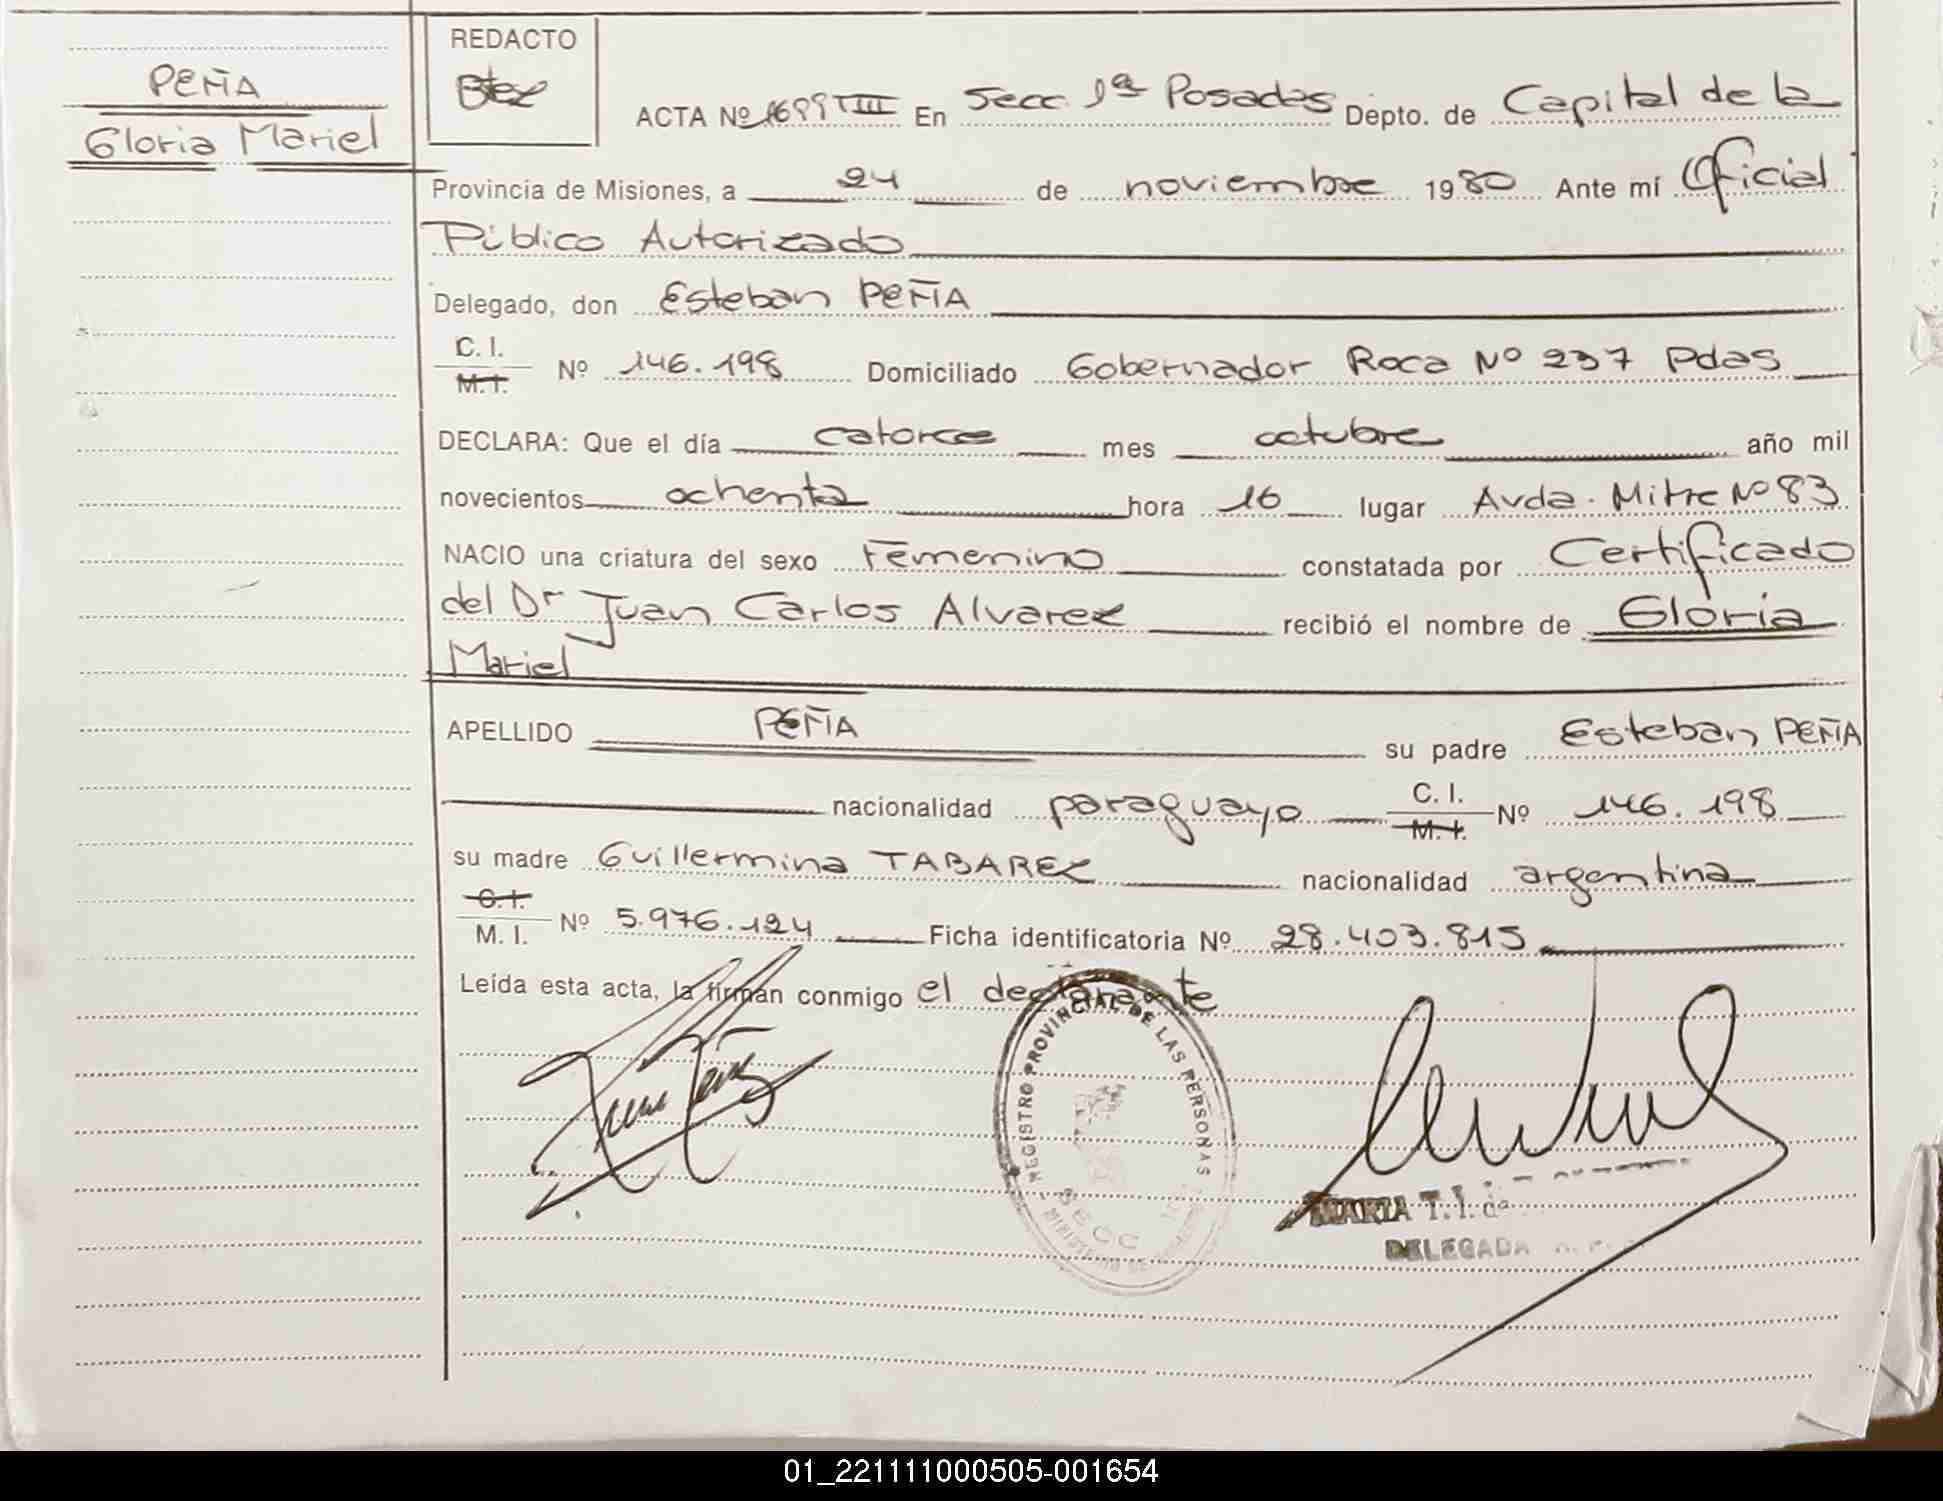 PEÑA
Gloria Mariel
REDACTO
ACTA Nº 1699 TIII En Secc. 1ª Posadas Depto. de Capital de la
Provincia de Misiones, a 24 de noviembre 1980 Ante mí Oficial
Público Autorizado
Delegado, don Esteban PEÑA
C. I.
M. I. Nº 146.198 Domiciliado Gobernador Roca Nº 237 Pdas
DECLARA: Que el día catorce mes octubre año mil
novecientos ochenta hora 16 lugar Avda. Mitre Nº 83
NACIO una criatura del sexo Femenino constatada por Certificado
del Dr Juan Carlos Alvarez recibió el nombre de Gloria
Mariel
APELLIDO PEÑA su padre Esteban PEÑA
nacionalidad paraguayo C. I. M. I. Nº 146.198
su madre Guillermina TABAREZ nacionalidad argentina
C. I.
M. I. Nº 5.976.124 Ficha identificatoria Nº 28.403.815
Leída esta acta, la firman conmigo el declarante
REGISTRO PROVINCIAL DE LAS PERSONAS
SECC
MARIA T. I. de
DELEGADA
01_221111000505-001654